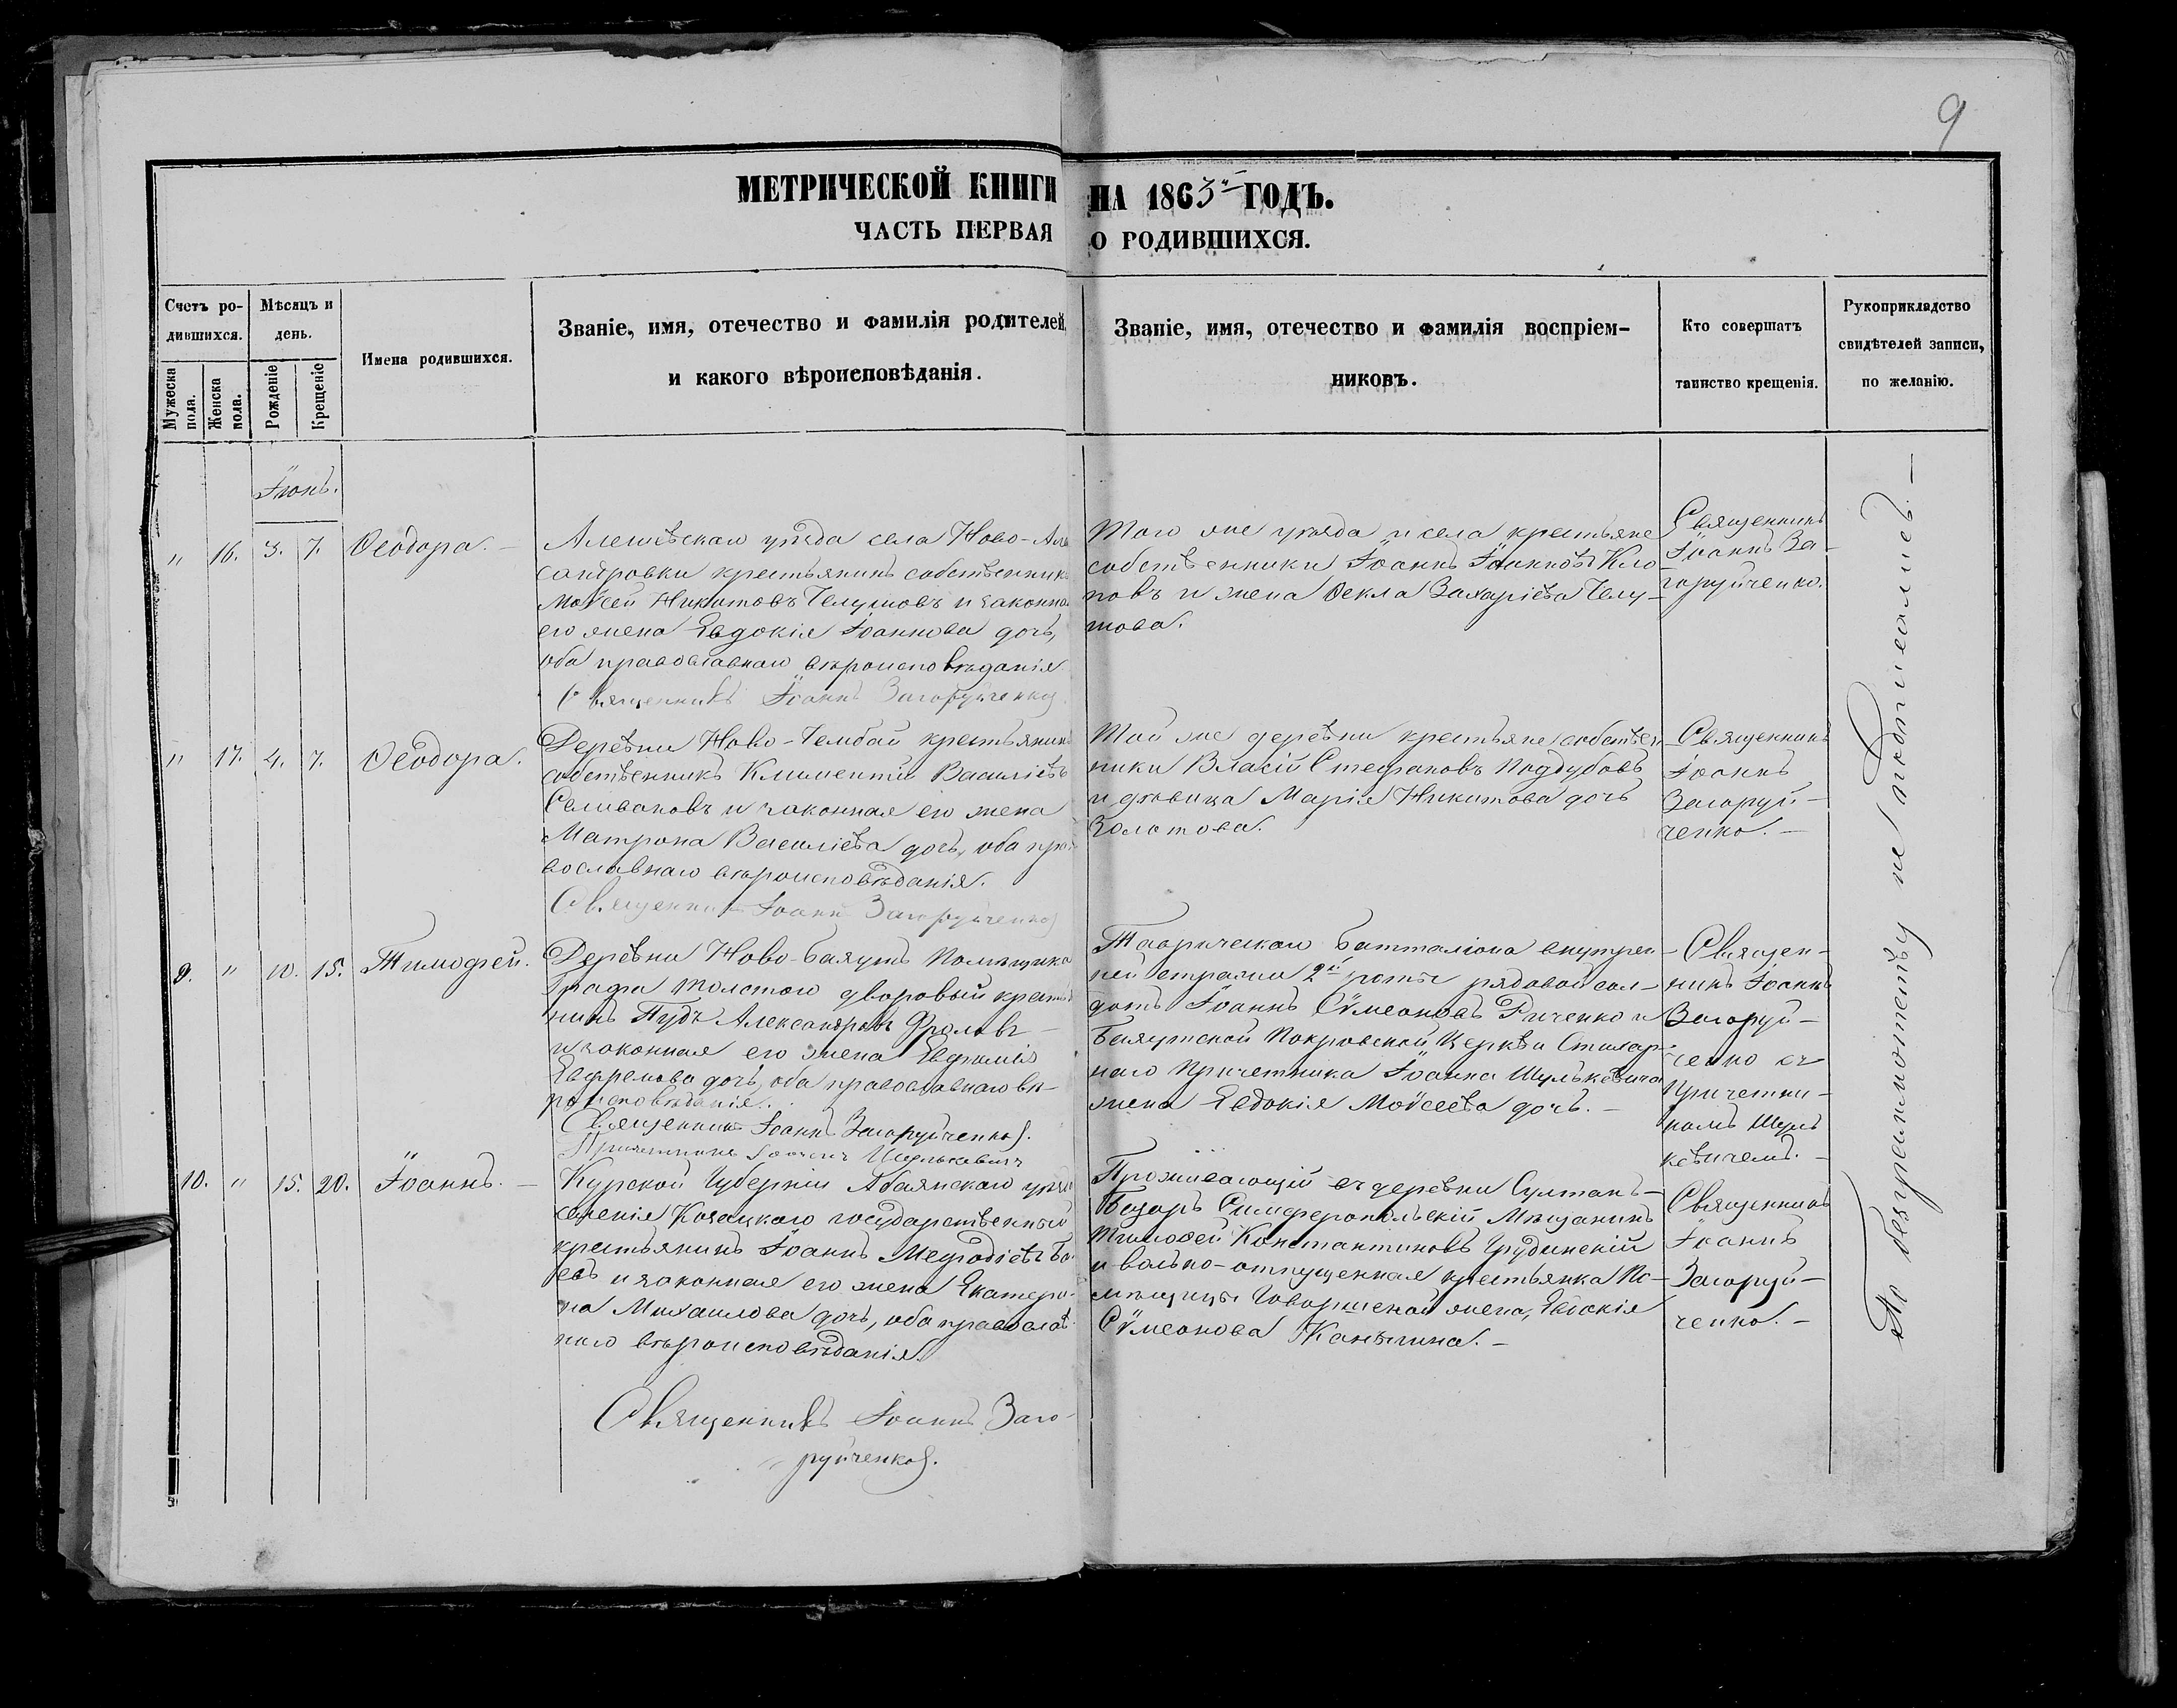 9
МЕТРИЧЕСКОЙ КНИГИ НА 1863й ГОДЪ.
ЧАСТЬ ПЕРВАЯ О РОДИВШИХСЯ.
Счетъ ро-
дившихся.
Мужеска
пола.
Женска
пола.
Мѣсяцъ и
день.
Рожденіе
Крещеніе
Имена родившихся.
Званіе, имя, отечество и фамилія родителей,
и какого вѣроисповѣданія.
Званіе, имя, отечество и фамилія воспріем-
никовъ.
Кто совершатъ
таинство крещенія.
Рукоприкладство
свидѣтелей записи,
по желанію.
Іюнь.
" 16. 3. 7. Ѳеодора. –
уѣзда села Ново-Але
крестьянинъ собственникъ
Моѵсей Никитовъ и законная
его жена Евдокія Іоаннова дочь,
оба православнаго вѣроисповѣданія
Священникъ Іоаннъ Загоруйченко
Того же уѣзда и села крестьяне
собственники Іоаннъ Іоанновъ Кло
повъ и жена Ѳекла Захаріева Челу-
това.
Священникъ
Іоаннъ За-
горуйченко.
" 17. 4. 7. Ѳеодора.
Деревни Ново-Чембай крестьянинъ
собственникъ Климентій Василіевъ
Селивановъ и законная его жена
Матрона Василіева дочь, оба пра-
вославнаго вѣроисповѣданія.
Священникъ Іоаннъ Загоруйченко
Той же деревни крестьяне собствен-
ники Власій Стефановъ Поддубовъ
и дѣвица Марія Никитова дочь
Золотова.
Священникъ
Іоаннъ
Загоруй-
ченко. –
9. " 10. 15. Тимофей.
Деревни Ново-Баяутъ Помѣщика
Графа Толстого дворовый крестья
нинъ Пудъ Александровъ Фроловъ –
и законная его жена Евфимія
Евфремова дочь, оба православнаго вѣ-
роисповѣданія.
Священникъ Іоаннъ Загоруйченко.
Причетникъ Іоаннъ Шулькевичъ
Таврическаго Батталіона внутрен-
ней стражи 2й роты рядовой сол-
датъ Іоаннъ Сѵмеоновъ и
Баяутской Покровской Церкви
наго Причетника Іоанна Шулькевича
жена Евдокія Моѵсеева дочь. –
Священ-
никъ Іоаннъ
Загоруй-
ченко съ
Причетни-
комъ Шуль
кевичемъ. –
10. " 15. 20. Іоаннъ. –
Курской Губерніи Абаянскаго уѣзда
селенія Козацкаго государственный
крестьянинъ Іоаннъ Меѳодіевъ Бо-
евъ и законная его жена Екатери-
на Михаилова дочь, оба православ-
наго вѣроисповѣданія.
Священникъ Іоаннъ Заго-
руйченко.
Проживающій въ деревни Султанъ-
Базаръ Симферопольскій Мѣщанинъ
Тимофей Константиновъ Грудинскій
и вольно-отпущенная крестьянка По-
мѣщицы жена, Евдокія
Сѵмеонова Жанѣгина. –
Священникъ
Іоаннъ
Загоруй-
ченко. –
По безграмотству не подписались. –